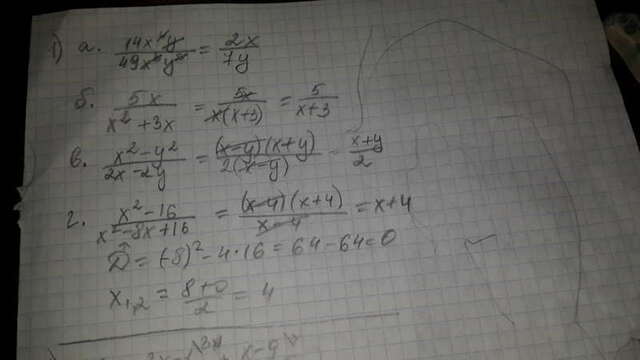 1) а. 14x⁴y / 49x³y² = 2x / 7y
б. 5x / x² + 3x = 5x / x(x+3) = 5 / x+3
в. x² - y² / 2x - 2y = (x-y)(x+y) / 2(x-y) - x+y / 2
г. x² - 16 / x² - 8x + 16 = (x-4)(x+4) / x-4 = x+4
D = (-8)² - 4·16 = 64 - 64 = 0
x₁,₂ = 8+0 / 2 = 4